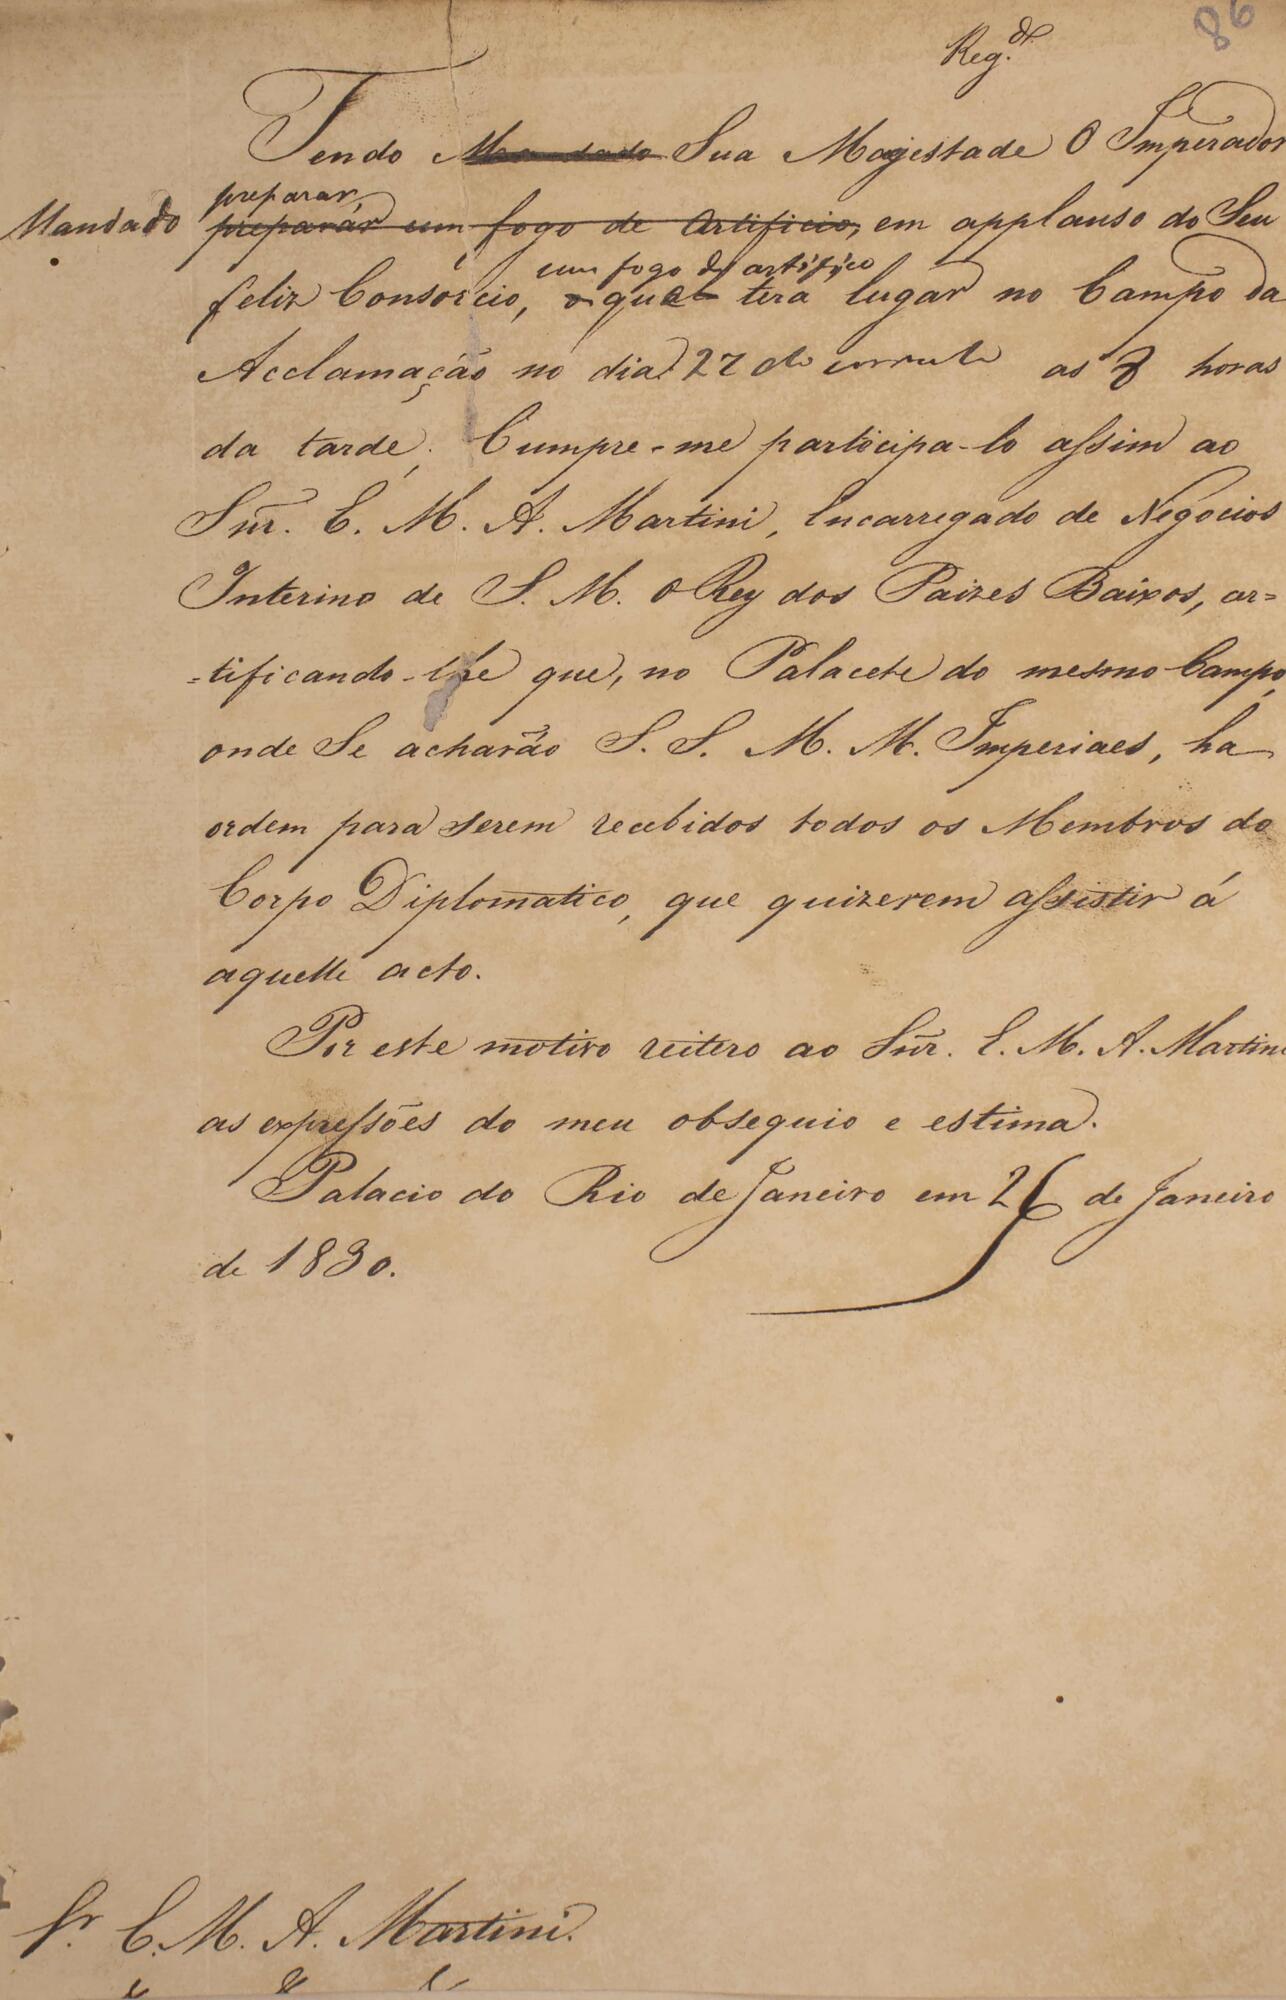 86
Reg.do
Tendo Mandado Sua Magestade O Imperador
preparar,
Mandado preparár um fogo de Artificio, em applauso do Seu
um fogo de artificio
feliz Consorcio, o qual terá lugar no Campo da
Acclamação no dia 27 do corrente as 8 horas
da tarde; Cumpre-me participa-lo assim ao
Snr. E. M. A. Martini, Encarregado de Negocios
Interino de S. M. O Rey dos Paizes Baixos, cer=
=tificando-lhe que, no Palacete do mesmo Campo,
onde Se acharão S. S. M. M. Imperiaes, ha
ordem para serem recebidos todos os Membros do
Corpo Diplomatico, que quizerem assistir á
aquelle acto.
Por este motivo reitero ao Snr. E. M. A. Martini
as expressões do meu obsequio e estima.
Palacio do Rio de Janeiro em 26 de Janeiro
de 1830.
Sr. E. M. A. Martini.